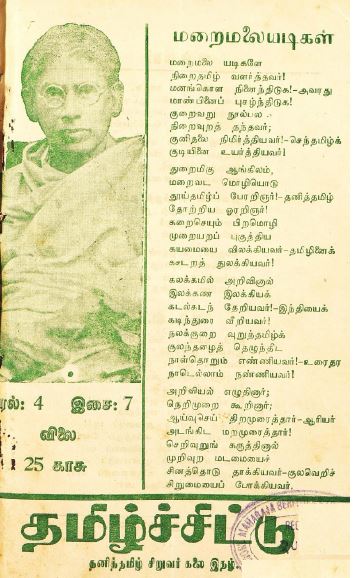 மறைமலையடிகள்
மறைமலை யடிகளே
நிறைதமிழ் வளர்த்தவர்!
மனங்கொள நினைந்திடுக!-அவரது
மாண்பினைப் புகழ்ந்திடுக!
குறைவறு நூல்பல
நிறைவுறத் தந்தவர்;
குனிதலை நிமிர்த்தியவர்!-செந்தமிழ்க்
குடியினை உயர்த்தியவர்!
துறைமிகு ஆங்கிலம்,
மறைவட மொழியொடு
தூய்தமிழ்ப் பேரறிஞர்!-தனித்தமிழ்
தோற்றிய ஓரறிஞர்!
கறைசெயும் பிறமொழி
முறையறப் புகுத்திய
கயமையை விலக்கியவர்-தமிழினைக்
கசடறத் துலக்கியவர்!
கலக்கமில் அறிவினால்
இலக்கண இலக்கியக்
கடல்கடந் தேறியவர்!-இந்தியைக்
கடிந்துரை வீறியவர்!
நலக்குறை வுறுந்தமிழ்க்
குலந்தழைத் தெழுந்திட
நாள்தொறும் எண்ணியவர்!-உரைதர
நாடெல்லாம் நண்ணியவர்!
அறிவியல் எழுதினார்;
நெறிமுறை கூறினார்;
ஆய்வுசெய் திறமுரைத்தார்-ஆரியர்
அடங்கிட மறமுரைத்தார்!
செறிவுறுங் கருத்தினால்
முறிவுற மடமையைச்
சினத்தொடு தாக்கியவர்-குலவெறிச்
சிறுமையைப் போக்கியவர்.
ரல்: 4 இசை: 7
விலை
25 காசு
தமிழ்ச்சிட்டு
தனித்தமிழ் சிறுவர் கலை இதழ்